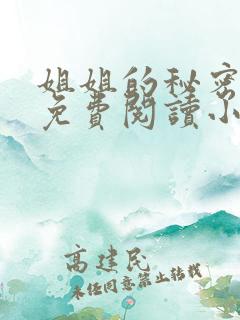 姐姐的秘密
免費閱讀小
高建民
未经同意禁止转载